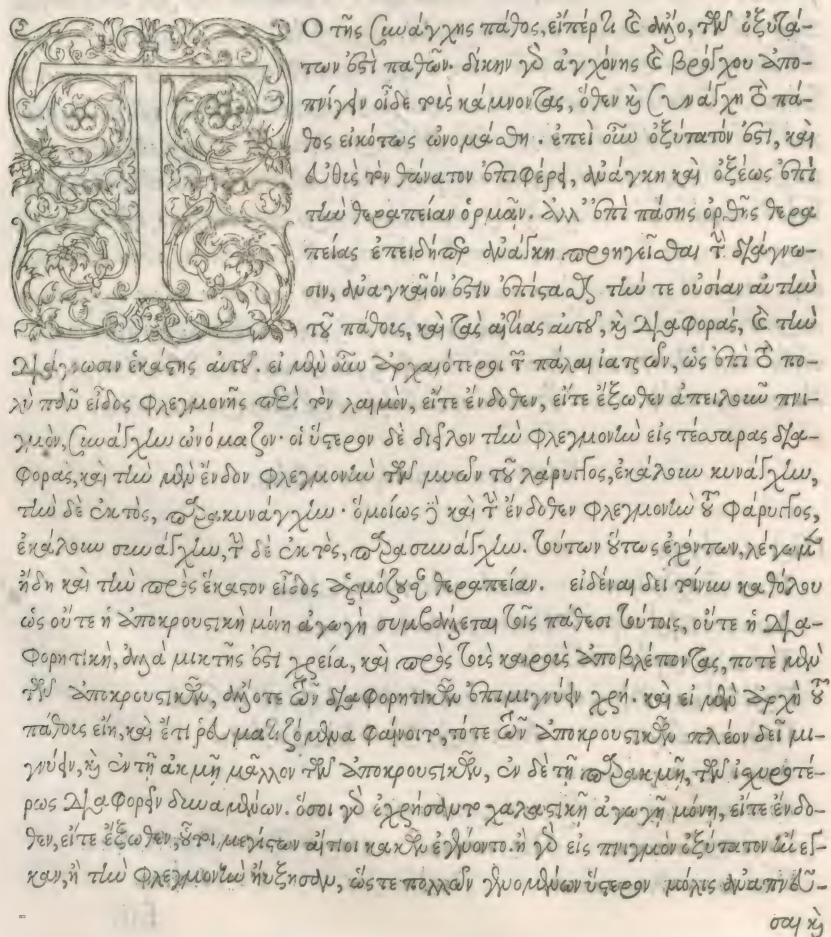 ΤΟ τῆς συνάγχης πάθος, εἴπέρ τι καὶ ἄλλο, τῶν ὀξυτά-
των ἐστὶ παθῶν. δίκην γὰρ ἀγχόνης καὶ βρόγχου ἀπο-
πνίγειν οἶδε τοὺς κάμνοντας, ὅθεν καὶ συνάγχη τὸ πά-
θος εἰκότως ὠνομάσθη. ἐπεὶ οὖν ὀξύτατόν ἐστι, καὶ
εὐθὺς τὸν θάνατον ἐπιφέρει, ἀνάγκη καὶ ὀξέως ἐπὶ
τὴν θεραπείαν ὁρμᾶν. ἀλλ' ἐπὶ πάσης ὀρθῆς θερα
πείας ἐπειδήπερ ἀνάγκη προηγεῖσθαι τὴν διάγνω-
σιν, ἀναγκαῖόν ἐστιν ἐπίστασθαι τήν τε οὐσίαν αὐτὴν
τοῦ πάθους, καὶ τὰς αἰτίας αὐτοῦ, καὶ διαφοράς, καὶ τὴν
διάγνωσιν ἑκάστης αὐτοῦ. εἰ μὲν οὖν ἀρχαιότεροι τῶν πάλαι ἰατρῶν, ὡς ἐπὶ τὸ πο-
λὺ πᾶν εἶδος φλεγμονῆς περὶ τὸν λαιμὸν, εἴτε ἔνδοθεν, εἴτε ἔξωθεν ἀπειλοῦν πνι-
γμὸν, συνάγχην ὠνόμαζον· οἱ ὕστερον δὲ διεῖλον τὴν φλεγμονὴν εἰς τέσσαρας δια-
φορὰς, καὶ τὴν μὲν ἔνδον φλεγμονὴν τῶν μυῶν τοῦ λάρυγγος, ἐκάλουν κυνάγχην,
τὴν δὲ ἐκτὸς, παρακυνάγχην· ὁμοίως δὲ καὶ τὴν ἔνδοθεν φλεγμονὴν τοῦ φάρυγγος,
ἐκάλουν συνάγχην, τὴν δὲ ἐκτὸς, παρασυνάγχην. τούτων οὕτως ἐχόντων, λέγωμεν
ἤδη καὶ τὴν πρὸς ἕκαστον εἶδος ἁρμόζουσαν θεραπείαν. εἰδέναι δεῖ τοίνυν καθόλου
ὡς οὔτε ἡ ἀποκρουστικὴ μόνη ἀγωγὴ συμβάλλεται τοῖς πάθεσι τούτοις, οὔτε ἡ δια-
φορητικὴ, ἀλλὰ μικτῆς ἐστὶ χρεία, καὶ πρὸς τοὺς καιροὺς ἀποβλέποντας, ποτὲ μὲν
τῶν ἀποκρουστικῶν, ἄλλοτε τῶν διαφορητικῶν ἐπιμιγνύειν χρή. καὶ εἰ μὲν ἀρχὴ τοῦ
πάθους εἴη, καὶ ἔτι ῥευματιζόμενα φαίνοιτο, τότε τῶν ἀποκρουστικῶν πλέον δεῖ μι-
γνύειν, καὶ ἐν τῇ ἀκμῇ μᾶλλον τῶν ἀποκρουστικῶν, ἐν δὲ τῇ παρακμῇ, τῶν ἰσχυροτέ-
ρως διαφορεῖν δυναμένων. ὅσοι γὰρ ἐχρήσαντο χαλαστικῇ ἀγωγῇ μόνῃ, εἴτε ἔνδο-
θεν, εἴτε ἔξωθεν, οὗτοι μεγίστων αἴτιοι κακῶν ἐγένοντο. ἢ γὰρ εἰς πνιγμὸν ὀξύτατον
καν, ἢ τὴν φλεγμονὴν ηὔξησαν, ὥστε πολλῶν γενομένων ὕστερον μόλις ἀναπνεῦ-
σαι καὶ